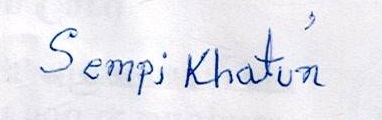 Sempi Khatun